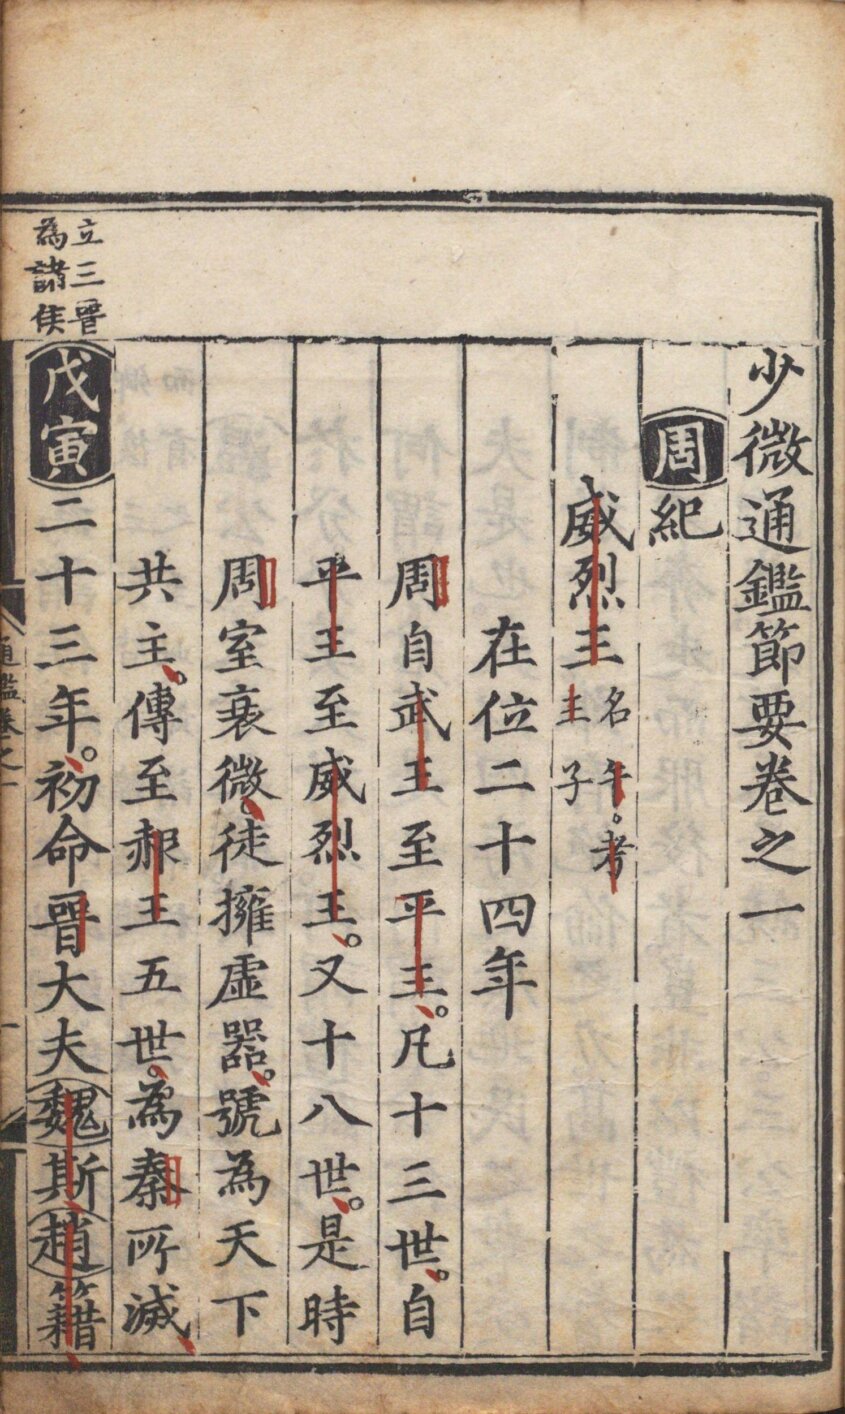 少微通鑑節要卷之一
周紀
威烈王 名午。考
王子
在位二十四年
周自武王至平王。凡十三世。自
平王至威烈王。又十八世。是時
周室衰微。徒擁虛器。號為天下
共主。傳至赧王五世。為秦所滅
立三晉
為諸侯
戊寅二十三年。初命晉大夫魏斯趙籍
通鑑卷之一
一